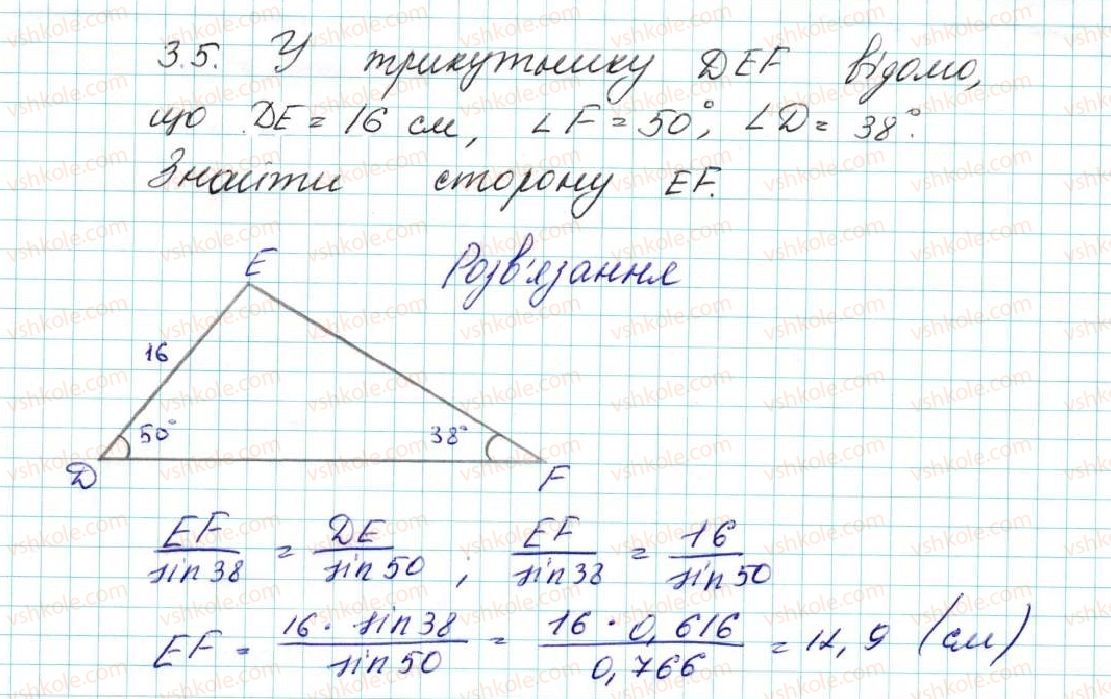 3.5. У трикутнику DEF відомо,
що DE = 16 см, ∠F = 50°, ∠D = 38°.
Знайти сторону EF.
Розв'язання
E
16
50°
38°
D
F
EF/sin38 = DE/sin50 ; EF/sin38 = 16/sin50
EF = 16 · sin38/sin50 = 16 · 0,616/0,766 = 12,9 (см)
vshkole.com